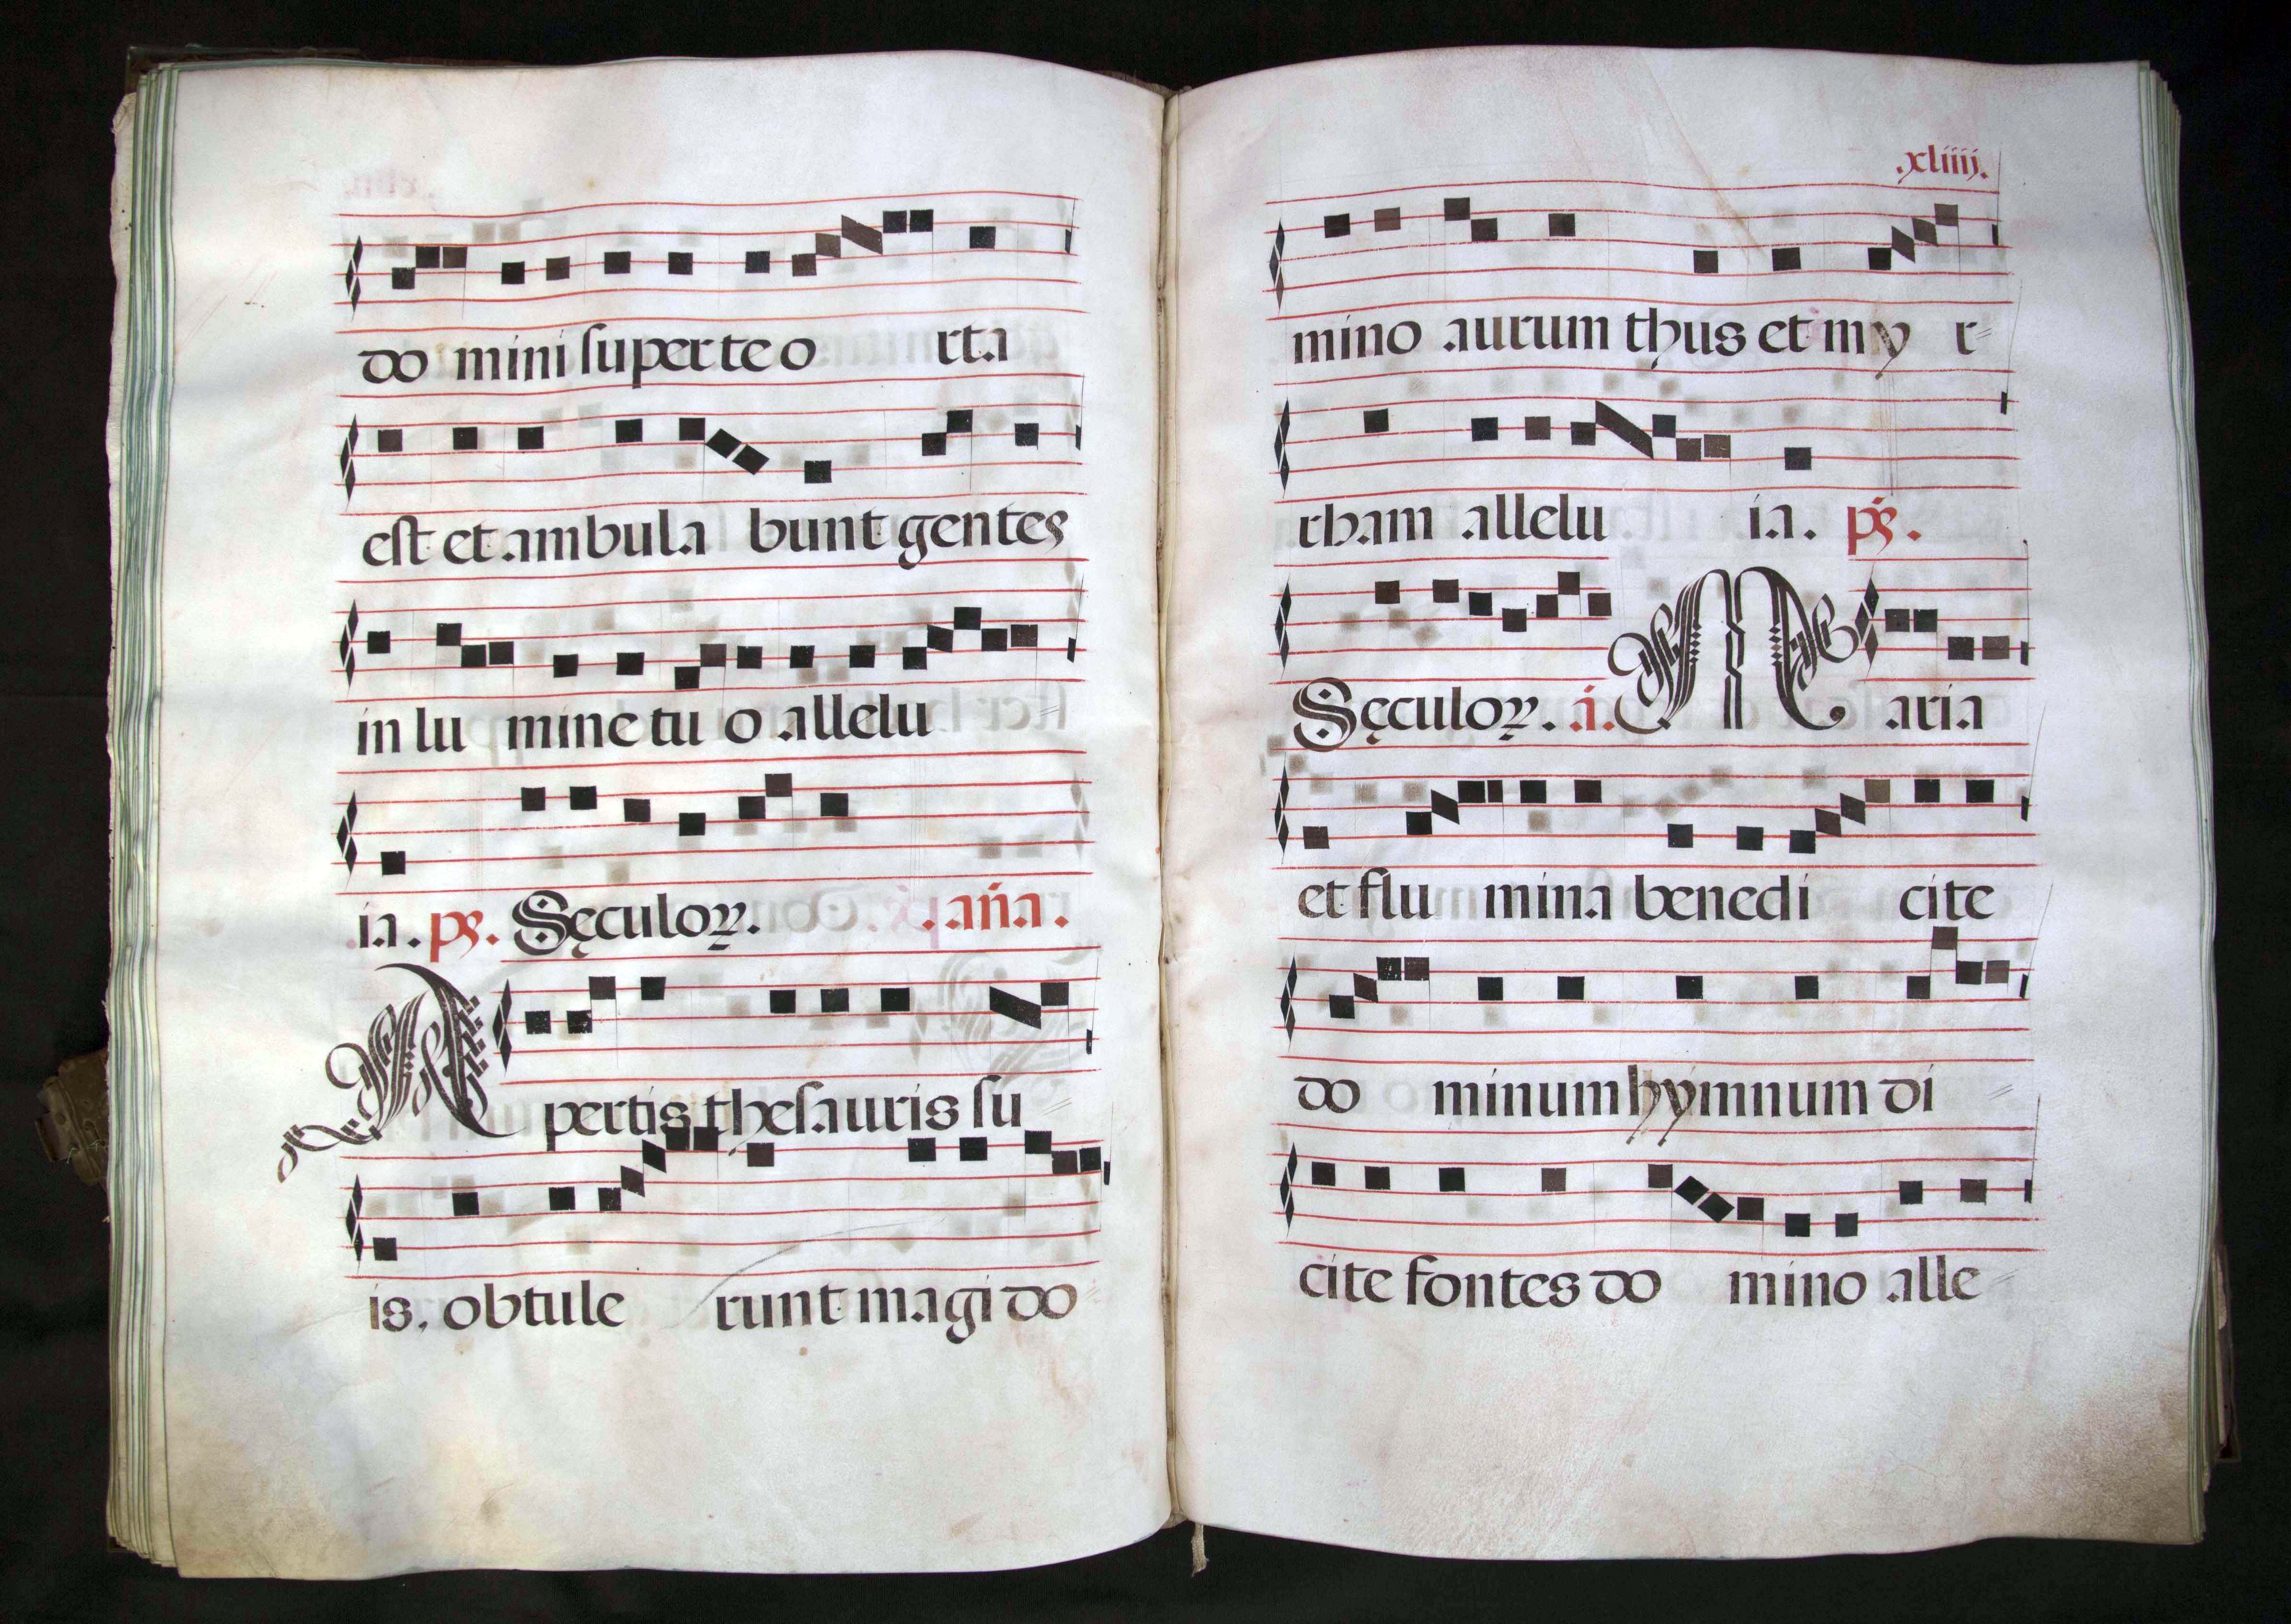 do mini super te o rta
est et ambula bunt gentes
in lu mine tu o allelu
ia. ps. Sęculoꝝ. .aña.
A pertis thesauris su
is. obtule runt magi do
.xliiij.
mino aurum thus et my r
rham allelu ia. ps.
Sęculoꝝ. á. Maria
et flu mina benedi cite
do minum hymnum di
cite fontes do mino alle